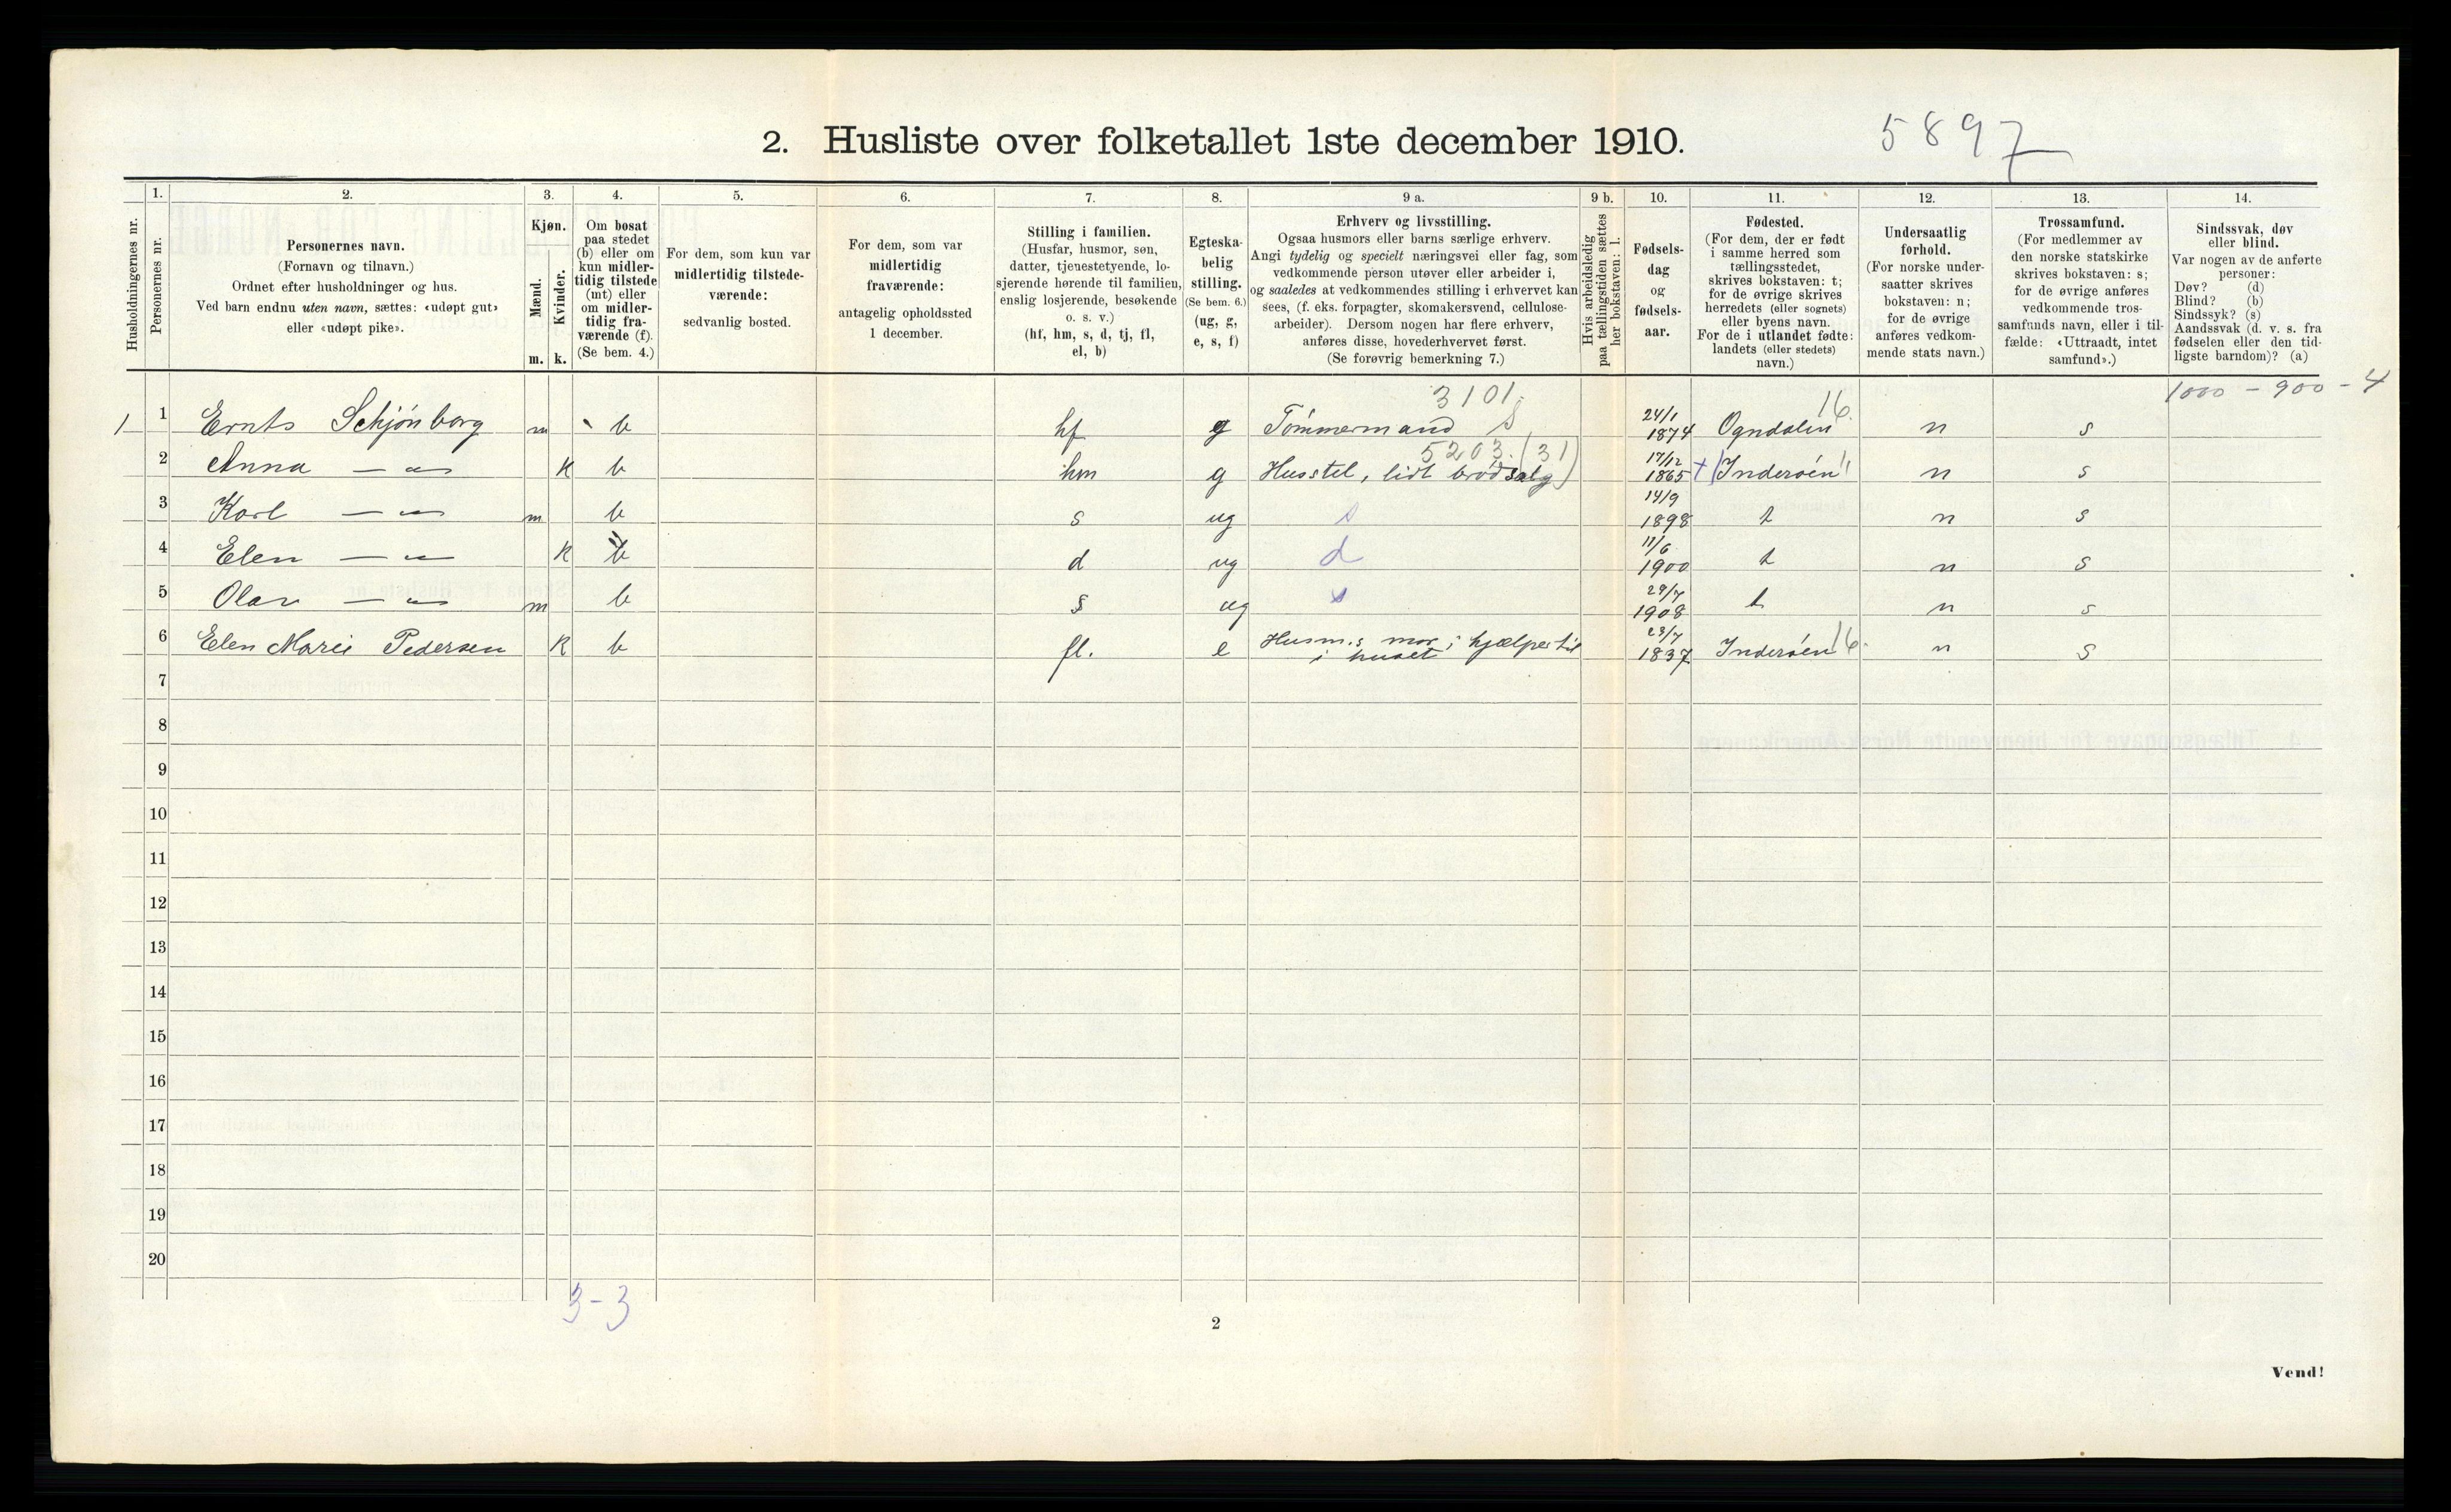 2. Husliste over folketallet 1ste december 1910.
5897
Husholdningernes nr.
1.
Personernes nr.
2.
Personernes navn.
(Fornavn og tilnavn.)
Ordnet efter husholdninger og hus.
Ved barn endnu uten navn, sættes: «udøpt gut»
eller «udøpt pike».
3.
Kjøn.
Mænd.
Kvinder.
m. k.
4.
Om bosat
paa stedet
(b) eller om
kun midler-
tidig tilstede
(mt) eller
om midler-
tidig fra-
værende (f).
(Se bem. 4.)
5.
For dem, som kun var
midlertidig tilstede-
værende:
sedvanlig bosted.
6.
For dem, som var
midlertidig
fraværende:
antagelig opholdssted
1 december.
7.
Stilling i familien.
(Husfar, husmor, søn,
datter, tjenestetyende, lo-
sjerende hørende til familien,
enslig losjerende, besøkende
o. s. v.)
(hf, hm, s, d, tj, fl,
el, b)
8.
Egteska-
belig
stilling.
(Se bem. 6.)
(ug, g,
e, s, f)
9 a.
Erhverv og livsstilling.
Ogsaa husmors eller barns særlige erhverv.
Angi tydelig og specielt næringsvei eller fag, som
vedkommende person utøver eller arbeider i,
og saaledes at vedkommendes stilling i erhvervet kan
sees, (f. eks. forpagter, skomakersvend, cellulose-
arbeider). Dersom nogen har flere erhverv,
anføres disse, hovederhvervet først.
(Se forøvrig bemerkning 7.)
9 b.
Hvis arbeidsledig
paa tællingstiden sættes
her bokstaven: l.
10.
Fødsels-
dag
og
fødsels-
aar.
11.
Fødested.
(For dem, der er født
i samme herred som
tællingsstedet,
skrives bokstaven: t;
for de øvrige skrives
herredets (eller sognets)
eller byens navn.
For de i utlandet fødte:
landets (eller stedets)
navn.)
12.
Undersaatlig
forhold.
(For norske under-
saatter skrives
bokstaven: n;
for de øvrige
anføres vedkom-
mende stats navn.)
13.
Trossamfund.
(For medlemmer av
den norske statskirke
skrives bokstaven: s;
for de øvrige anføres
vedkommende tros-
samfunds navn, eller i til-
fælde: «Uttraadt, intet
samfund».)
14.
Sindssvak, døv
eller blind.
Var nogen av de anførte
personer:
Døv? (d)
Blind? (b)
Sindssyk? (s)
Aandssvak (d. v. s. fra
fødselen eller den tid-
ligste barndom)? (a)
3101. 16. 1000 - 900 - 4
1 1 Ernts Schjønborg m b hf g Tømmermand s 24/1 1874 Ogndalen n s
5203. (31)
2 Anna — " — k b hm g Husstel, lidt brødsalg 17/12 1865 + Inderøen n s
3 Karl — " — m b s ug s 14/9 1898 t n s
4 Elen — " — k b d ug d 11/6 1900 t n s
5 Olav — " — m b s ug s 29/7 1908 t n s
6 Elen Marie Pedersen k b fl. e Husm.s mor; hjælper til i huset 23/7 1837 Inderøen 16. n s
7
8
9
10
11
12
13
14
15
16
17
18
19
20
3-3
2
Vend!